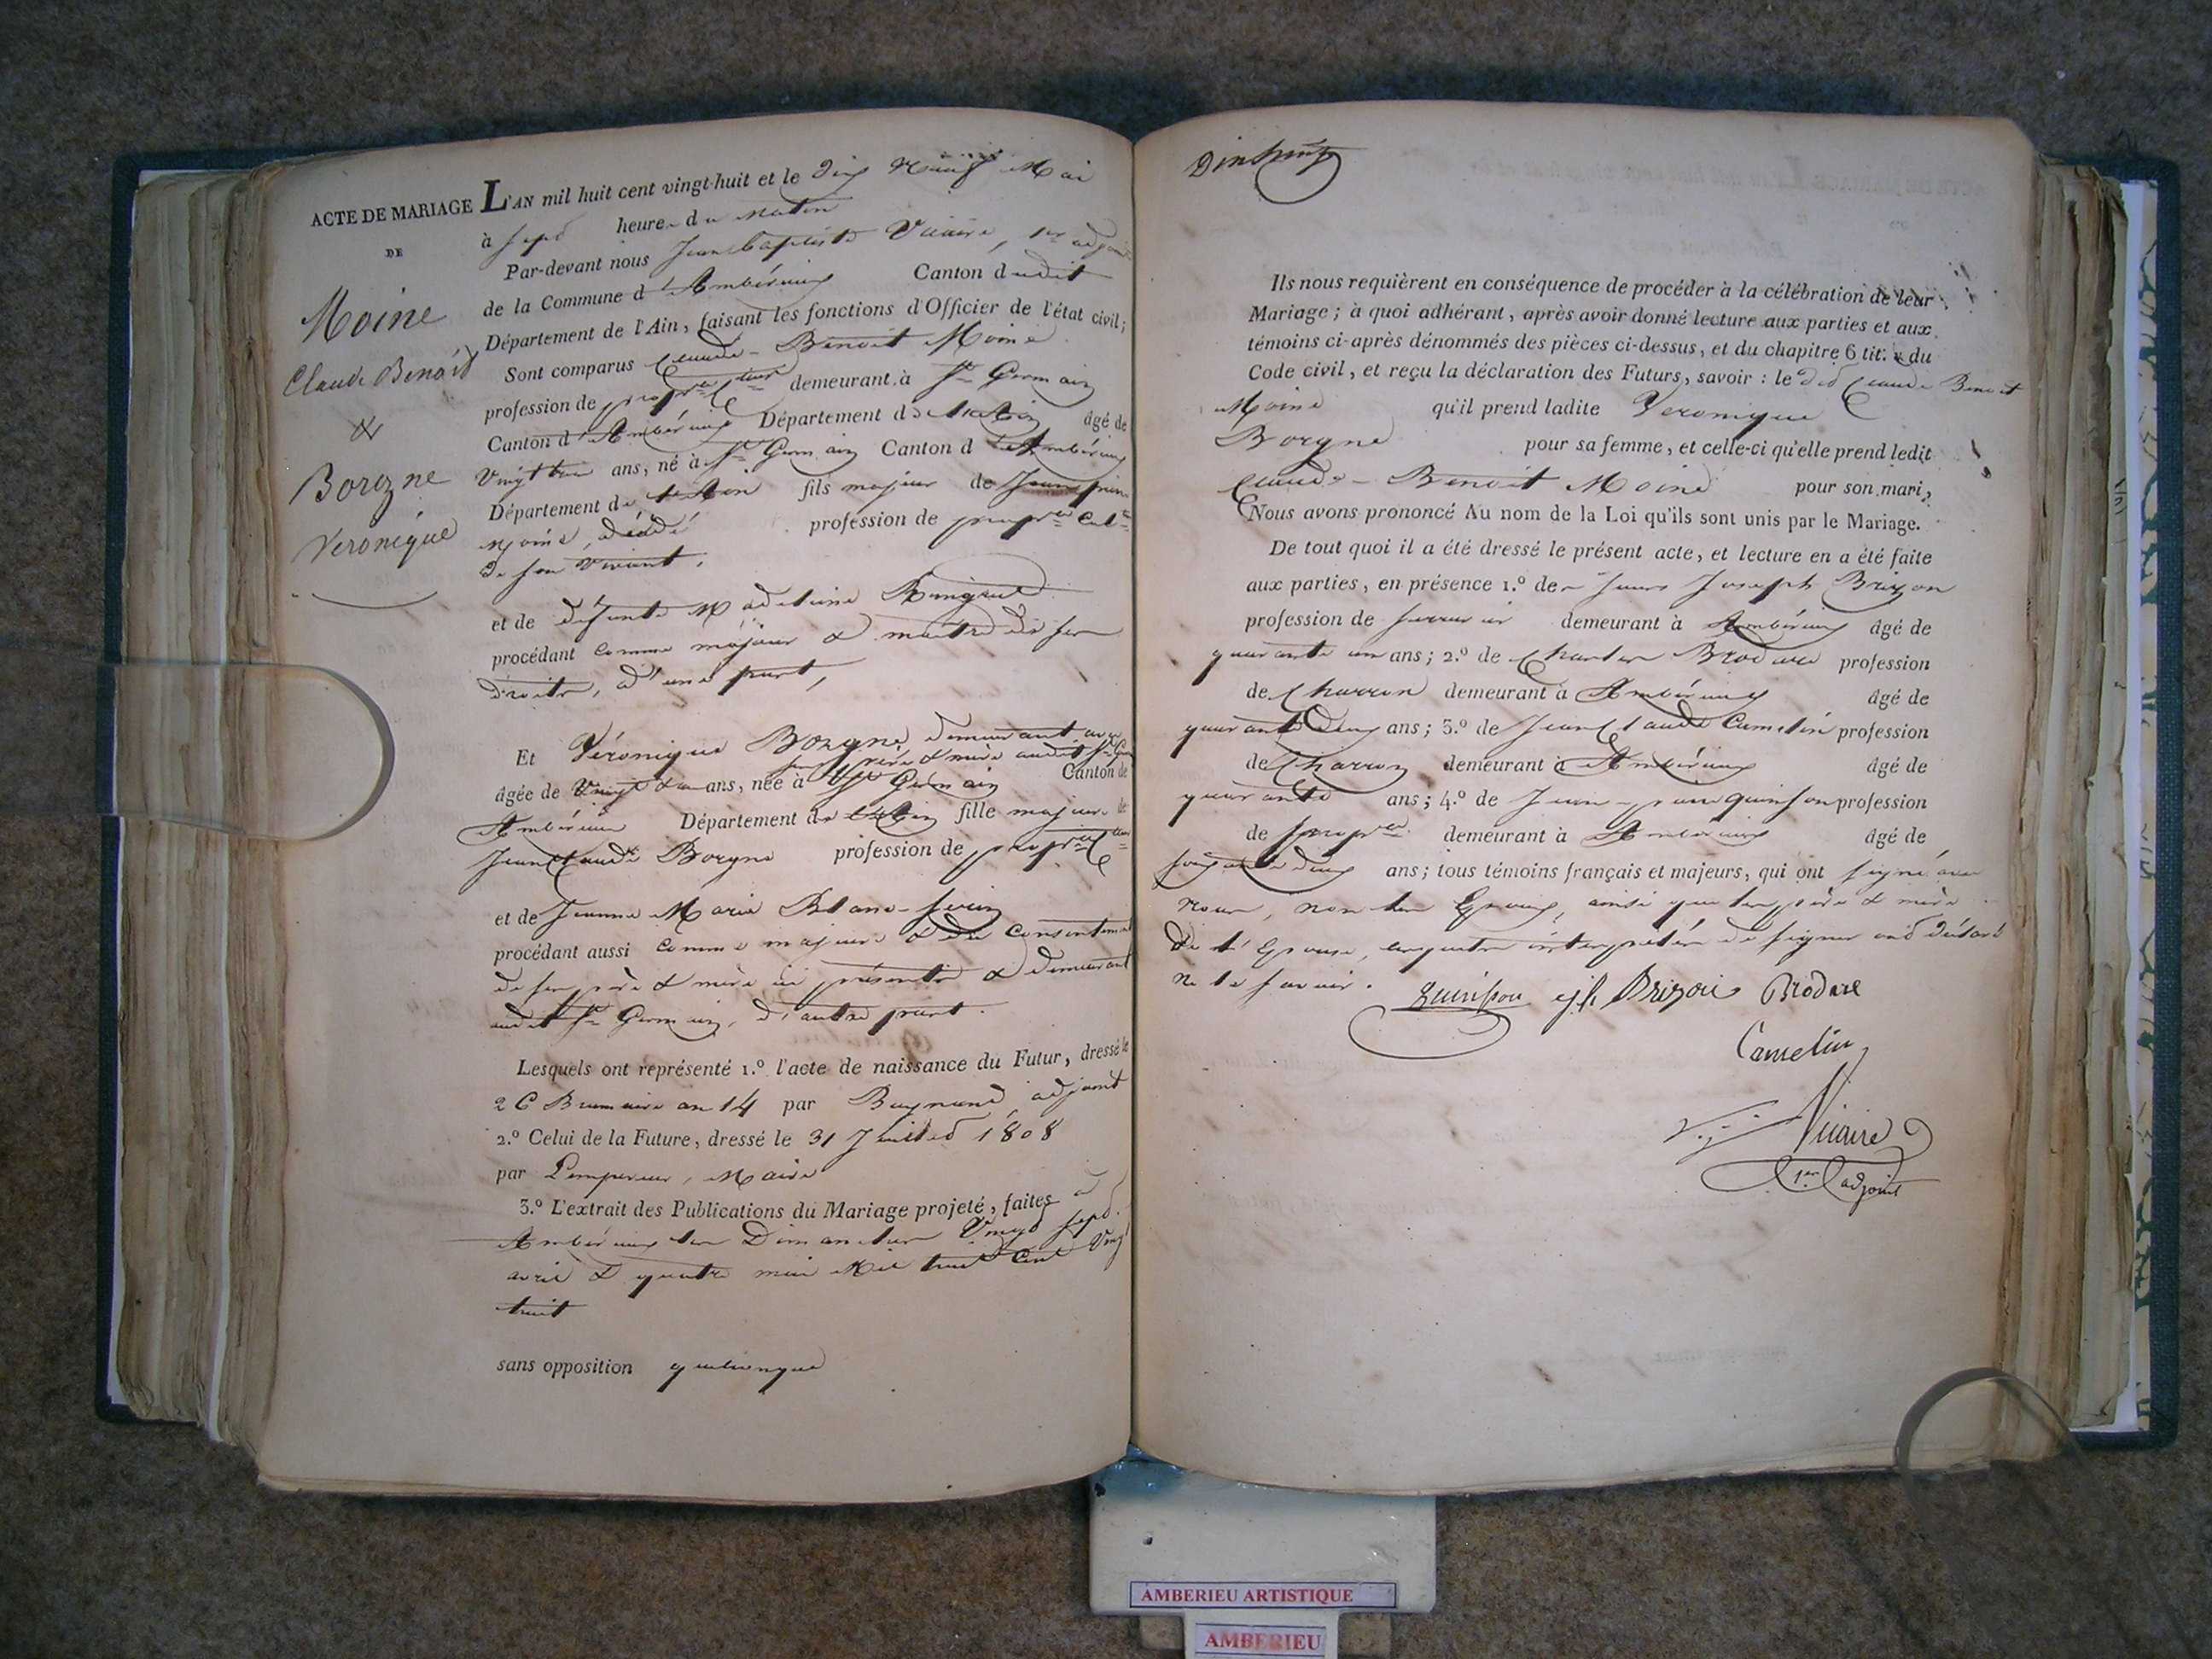 ACTE DE MARIAGE
DE
Moine
Claude Benoit
&
Borgne
Veronique
L'AN mil huit cent vingt-huit et le Dix Neuf Mai
à Sept heures du matin
Par-devant nous Jean Baptiste Vicaire, 1er adjoint
de la Commune d'Ambérieux Canton dudit
Département de l'Ain, faisant les fonctions d'Officier de l'état civil;
Sont comparus Claude-Benoit Moine
profession de propre demeurant à St Germain
Canton d'Ambérieux Département de l'Ain âgé de
Vingt trois ans, né à St Germain Canton d'Ambérieux
Département de l'Ain fils majeur de Jean
Moine, décédé profession de propre Cult
de son Vivant,
et de défunte Madelaine
procédant comme majeur & maitre de ses
droits, d'une part,
Et Véronique Borgne demeurant avec
ses père & mère audit St Ger
âgée de Vingt ans, née à St Germain Canton de
Ambérieux Département de l'Ain fille majeure de
Jean Claude Borgne profession de propre
et de Jeanne Marie Blanc-ferin
procédant aussi comme majeure & du Consentement
de ses père & mère ici présents & demeurant
audit St Germain, d'autre part.
Lesquels ont représenté 1.º l'acte de naissance du Futur, dressé le
26 Brumaire an 14 par adjoint
2.º Celui de la Future, dressé le 31 Juillet 1808
par Lempereur, Maire
3.º L'extrait des Publications du Mariage projeté, faites à
Ambérieux les Dimanches Vingt sept
avril & quatre mai Mil huit Cent Vingt
huit
sans opposition quelconque
Dix huit
Ils nous requièrent en conséquence de procéder à la célébration de leur
Mariage; à quoi adhérant, après avoir donné lecture aux parties et aux
témoins ci-après dénommés des pièces ci-dessus, et du chapitre 6 tit. du
Code civil, et reçu la déclaration des Futurs, savoir: le dit Claude Benoit
Moine qu'il prend ladite Veronique
Borgne pour sa femme, et celle-ci qu'elle prend ledit
Claude-Benoit Moine pour son mari,
Nous avons prononcé Au nom de la Loi qu'ils sont unis par le Mariage.
De tout quoi il a été dressé le présent acte, et lecture en a été faite
aux parties, en présence 1.º de Joseph Brizon
profession de serrurier demeurant à Ambérieux âgé de
quarante un ans; 2.º de Charles Brodare profession
de Charron demeurant à Ambérieux âgé de
quarante deux ans; 3.º de Jean Claude Camelin profession
de Charron demeurant à Ambérieux âgé de
quarante ans; 4.º de Jean- quinson profession
de propre demeurant à Ambérieux âgé de
soixante deux ans; tous témoins français et majeurs, qui ont signé avec
nous, non les Epoux, ainsi que les père & mère
de l'Epouse, lesquels interpellés de signer ont déclaré
ne le savoir.
quinson Brizon Brodare
Camelin
Vicaire
1er adjoint
AMBERIEU ARTISTIQUE
AMBERIEU